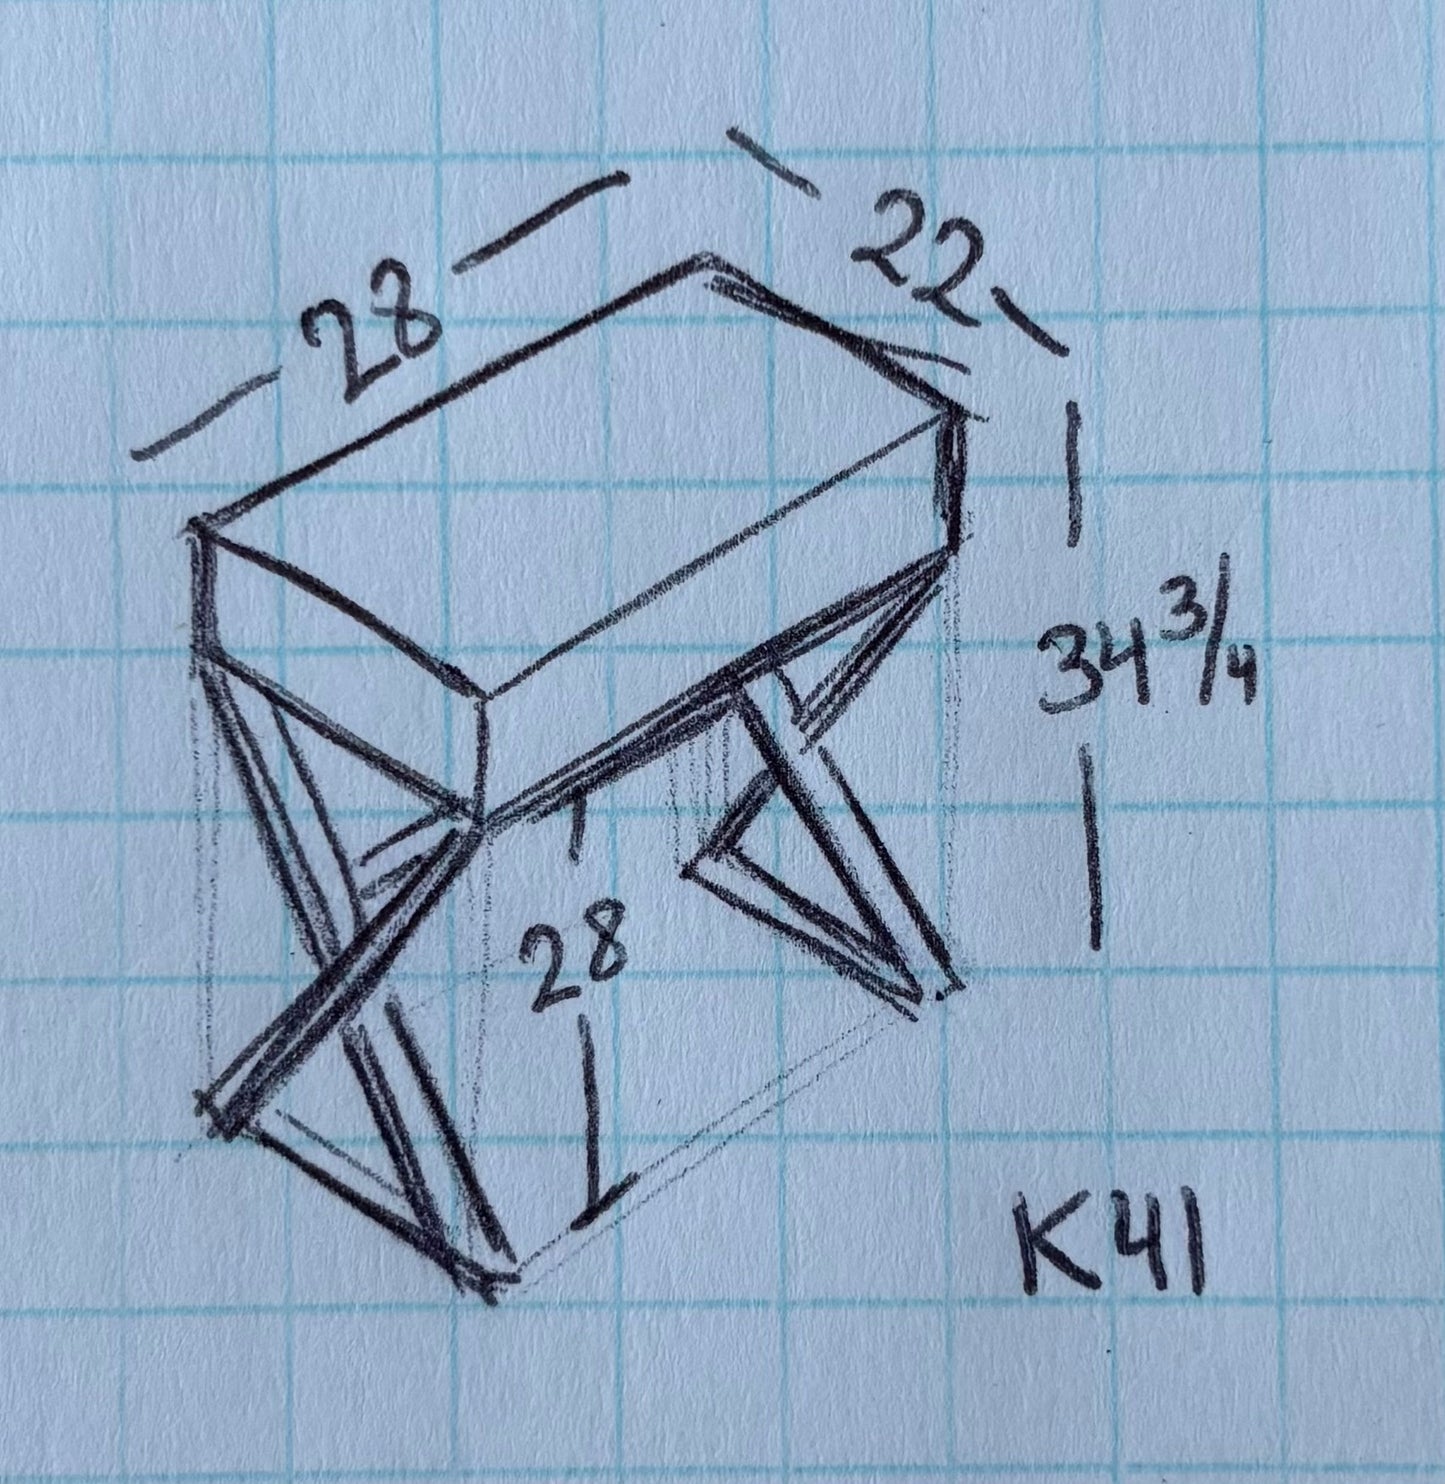 22
28
34 3/4
28
K41